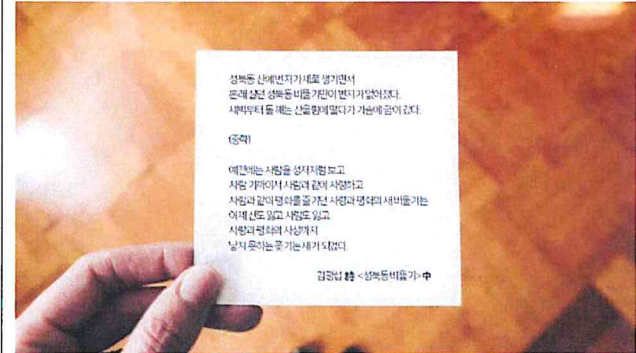 성북동 산에 번지가 새로 생기면서
본래 살던 성북동 비둘기만이 번지가 없어졌다.
새벽부터 돌 깨는 산울림에 떨다가 가슴에 금이 갔다.
(중략)
예전에는 사람을 성자처럼 보고
사람 가까이서 사람과 같이 사랑하고
사람과 같이 평화를 즐기던 사랑과 평화의 새 비둘기는
이제 산도 잃고 사람도 잃고
사랑과 평화의 사상까지
낳지 못하는 쫓기는 새가 되었다.
김광섭 詩 <성북동 비둘기> 中